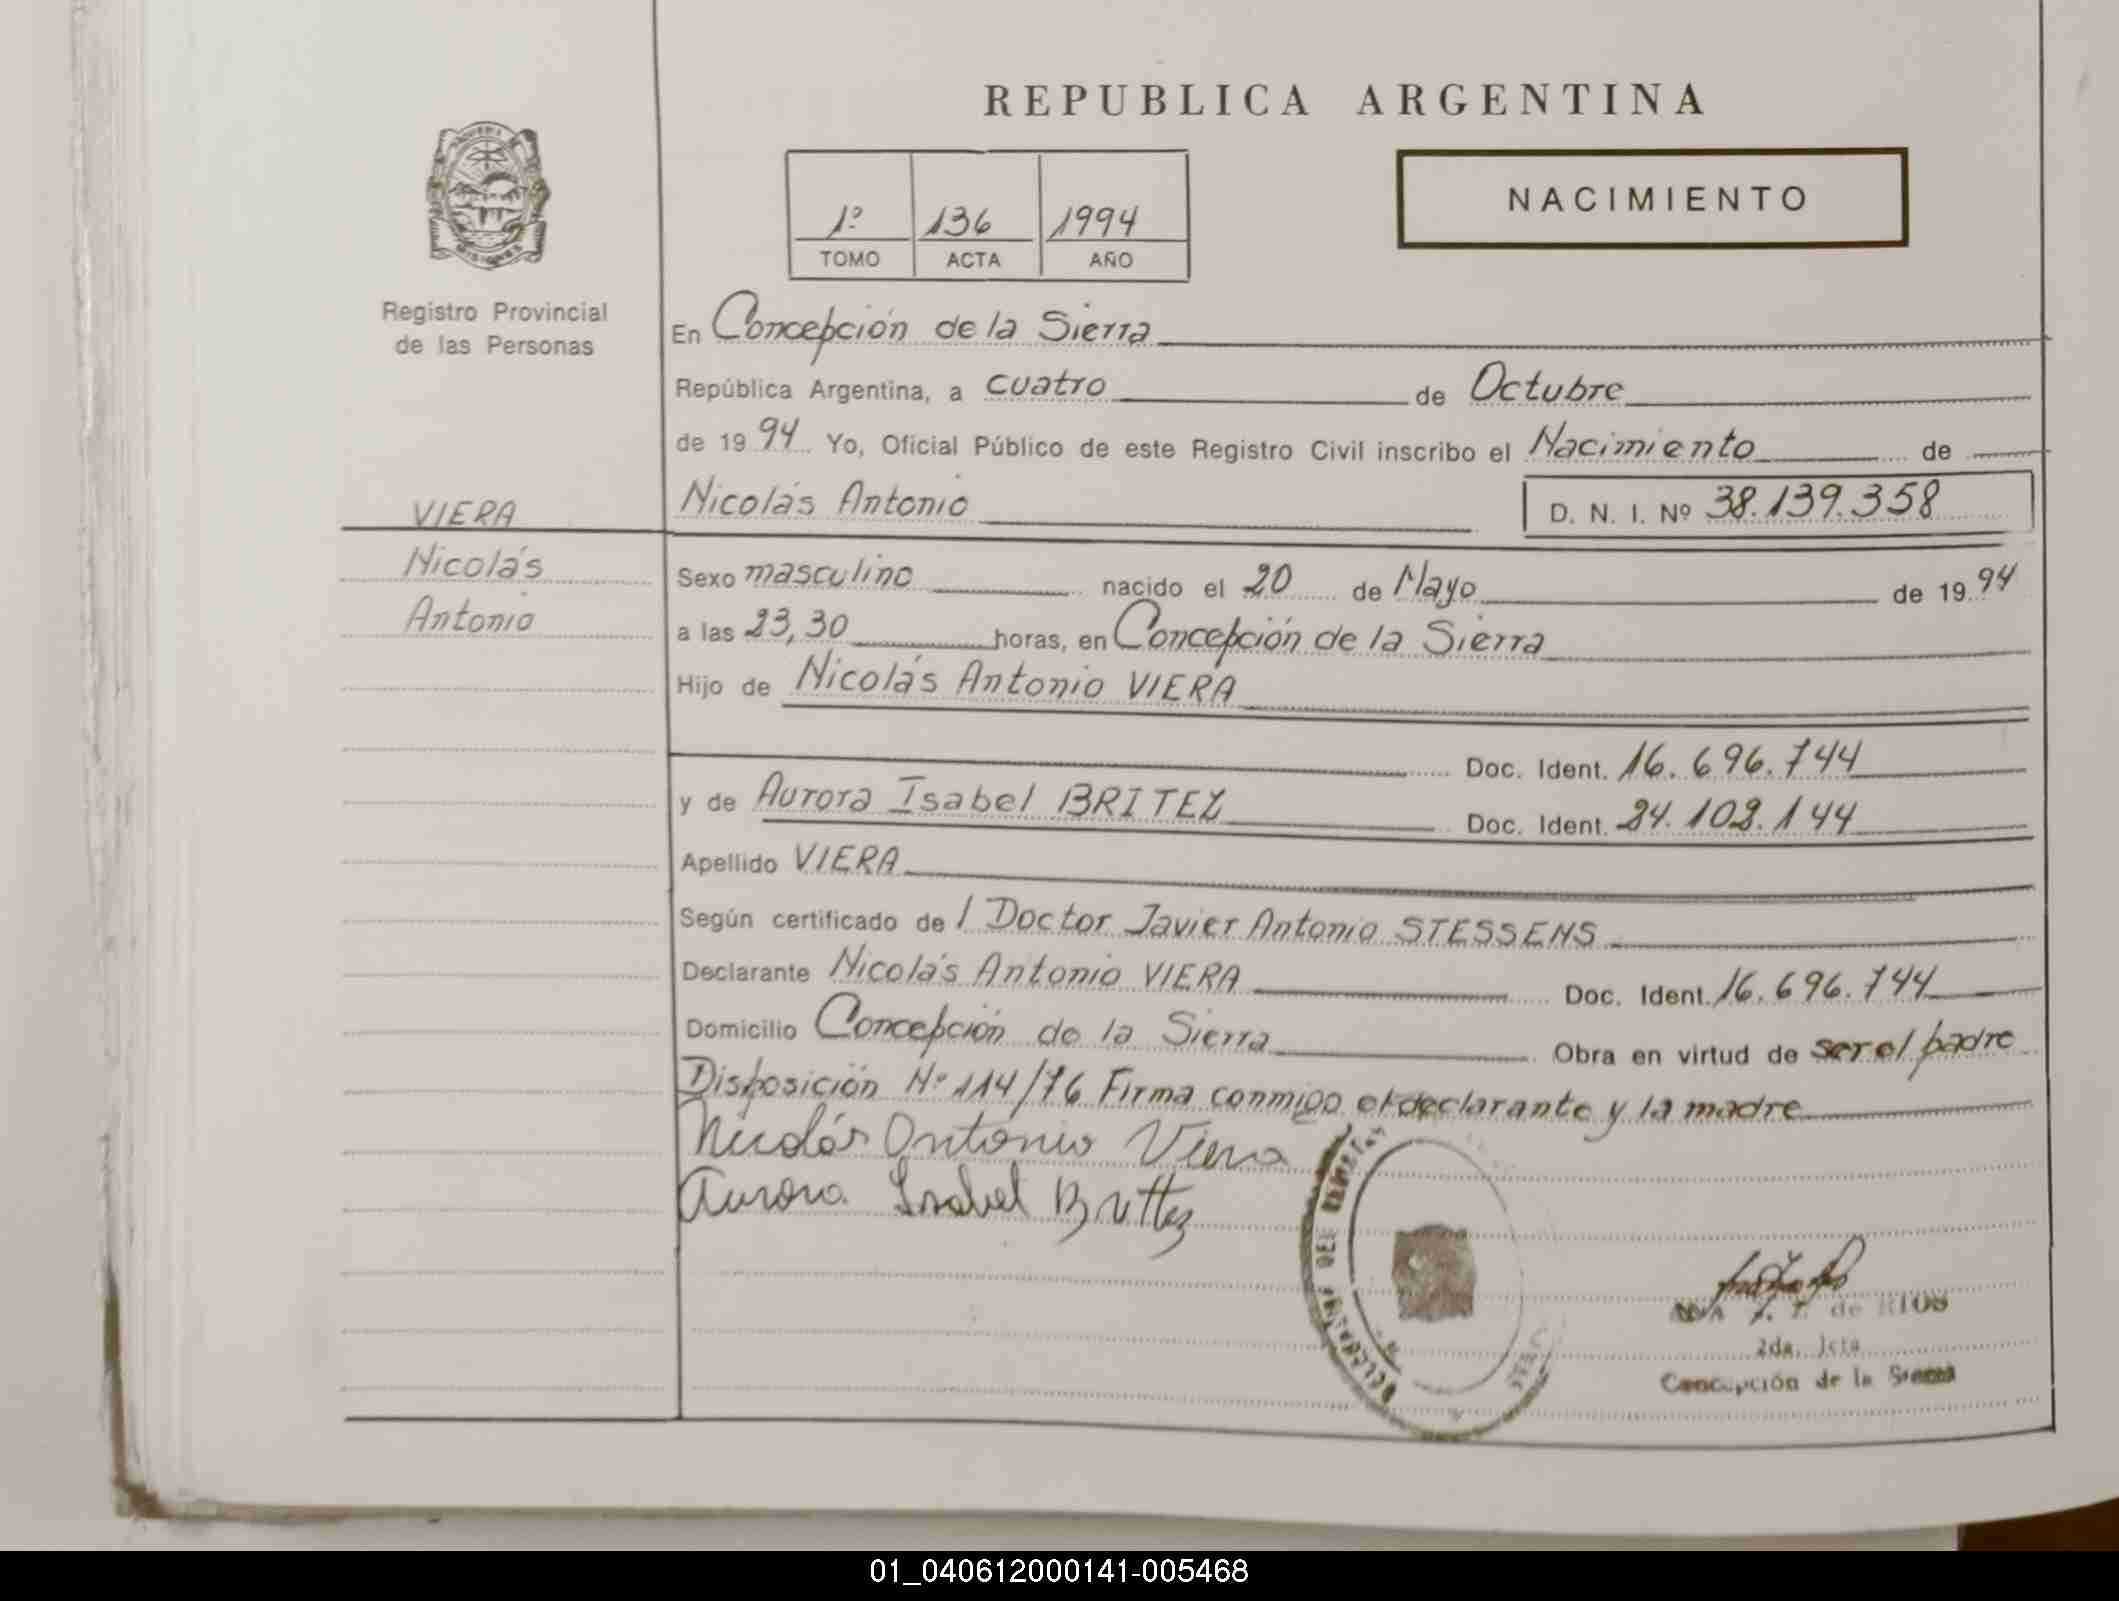 REPUBLICA ARGENTINA
NACIMIENTO
1º 136 1994
TOMO ACTA AÑO
MISIONES
Registro Provincial
de las Personas
VIERA
Nicolás
Antonio
En Concepción de la Sierra
República Argentina, a cuatro de Octubre
de 1994 Yo, Oficial Público de este Registro Civil inscribo el Nacimiento de
Nicolás Antonio D. N. I. Nº 38.139.358
Sexo masculino nacido el 20 de Mayo de 1994
a las 23,30 horas, en Concepción de la Sierra
Hijo de Nicolás Antonio VIERA
Doc. Ident. 16.696.744
y de Aurora Isabel BRITEZ Doc. Ident. 24.102.144
Apellido VIERA
Según certificado de l Doctor Javier Antonio STESSENS
Declarante Nicolás Antonio VIERA Doc. Ident. 16.696.744
Domicilio Concepción de la Sierra Obra en virtud de ser el padre
Disposición Nº 114/76 Firma conmigo el declarante y la madre
Nicolás Antonio Viera
Aurora Isabel Brittez
DEL REGISTRO
de RIOS
2da.
Concepción de la Sierra
01_040612000141-005468